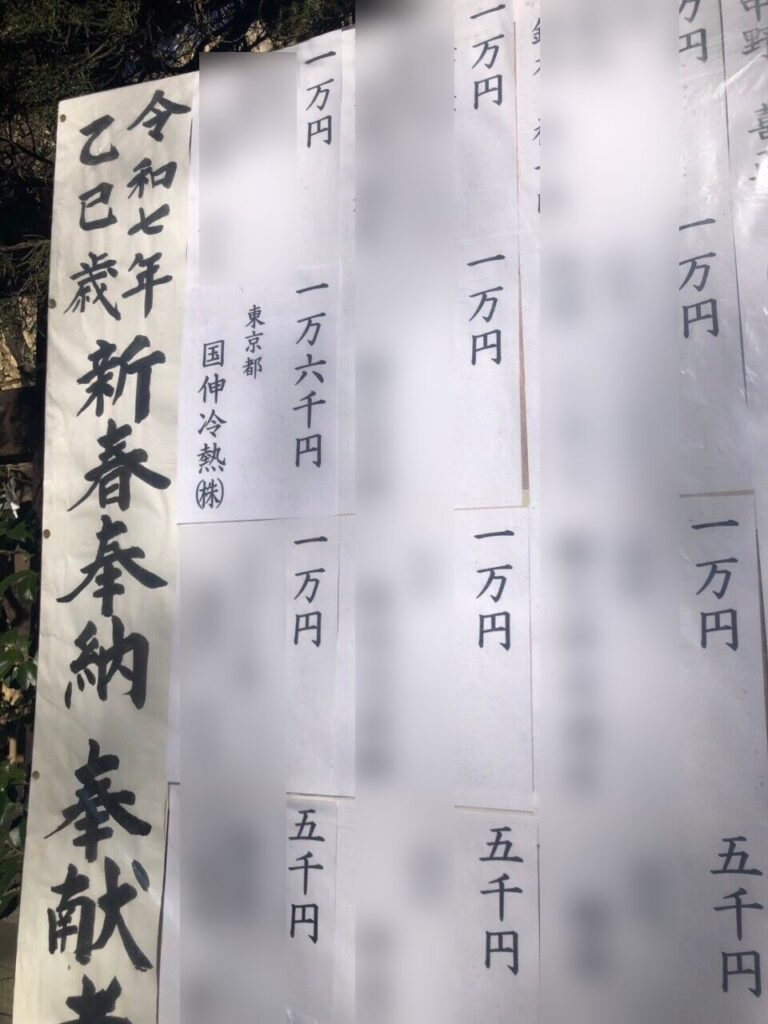 中野 喜
万円
一万円
一万円
五千円
一万円
一万円
一万円
五千円
一万円
一万六千円
東京都
国伸冷熱㈱
一万円
五千円
令和七年
乙巳歳
新春奉納 奉献者